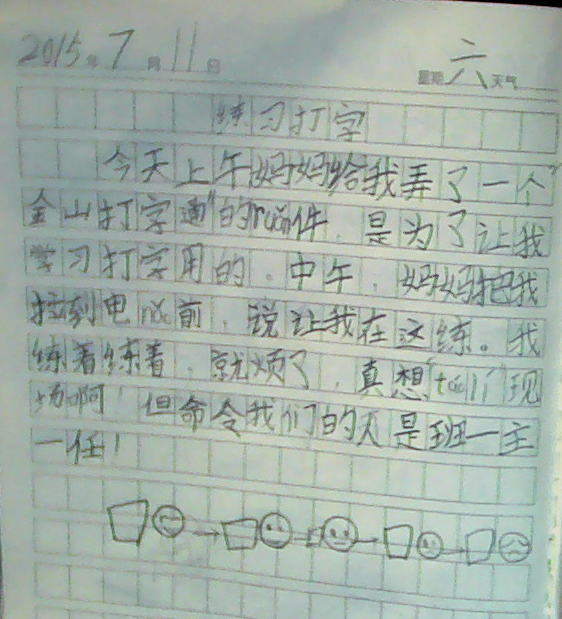 2015年7月11日 星期六天气
练习打字
今天上午妈妈给我弄了一个"
金山打字通"的ruǎn件，是为了让我
学习打字用的。中午，妈妈把我
拉到电nǎo前，说让我在这练。我
练着练着，就烦了，真想"táo lí"现
场啊！但命令我们的人是班一主
一任！